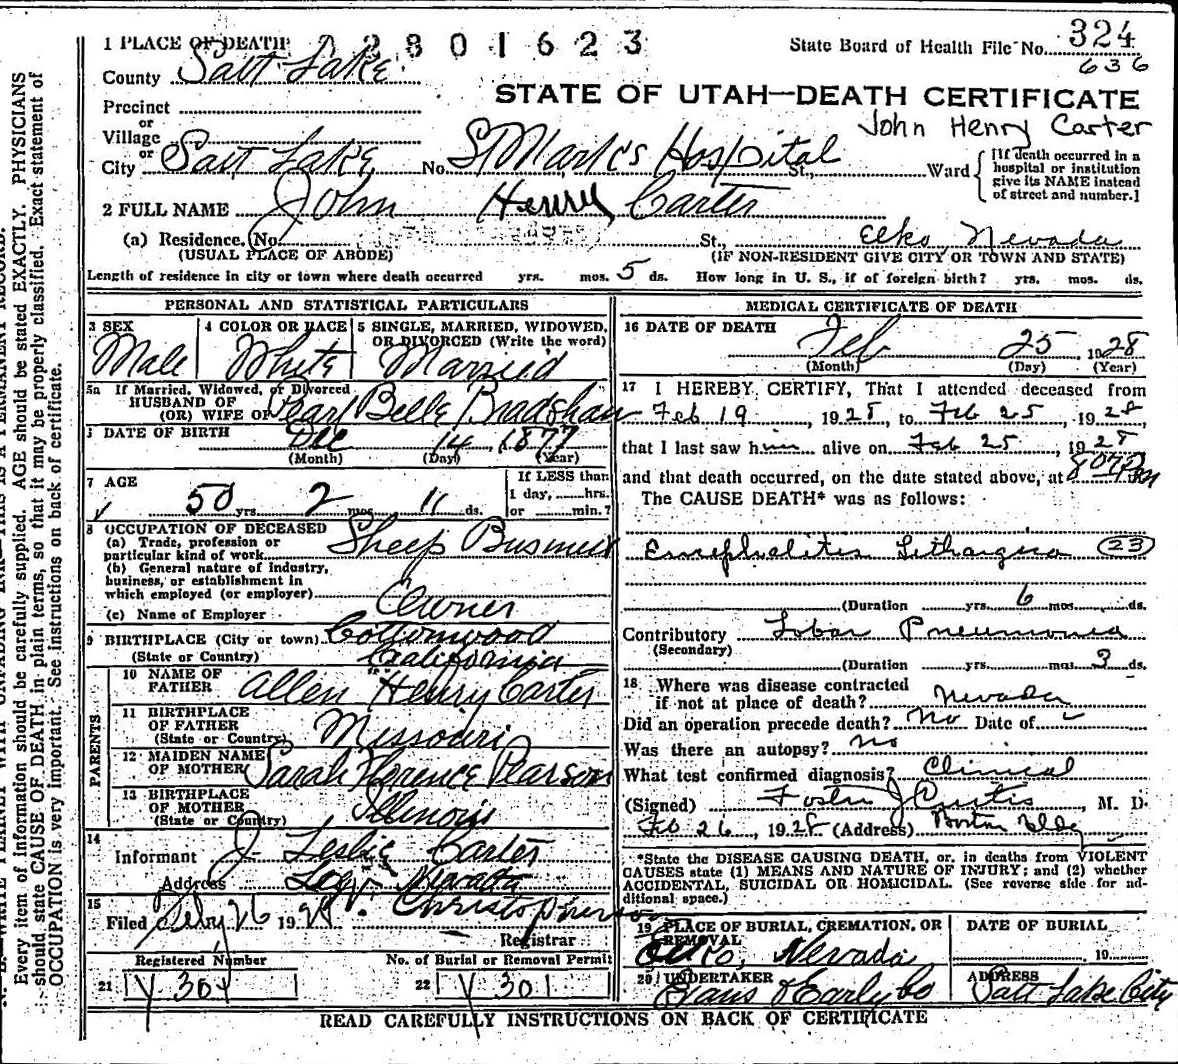 1 PLACE OF DEATH 2801623
State Board of Health File No. 324
636
County Salt Lake
STATE OF UTAH—DEATH CERTIFICATE
Precinct
or
Village
John Henry Carter
or
City Salt Lake No. St Mark's Hospital St., Ward
[If death occurred in a hospital or institution give its NAME instead of street and number.]
2 FULL NAME John Henry Carter
(a) Residence. (No. St., Elko, Nevada
(USUAL PLACE OF ABODE) (IF NON-RESIDENT GIVE CITY OR TOWN AND STATE)
Length of residence in city or town where death occurred yrs. mos. 5 ds. How long in U. S., if of foreign birth? yrs. mos. ds.
PERSONAL AND STATISTICAL PARTICULARS
3 SEX
Male
4 COLOR OR RACE
White
5 SINGLE, MARRIED, WIDOWED, OR DIVORCED (Write the word)
Married
5a If Married, Widowed, or Divorced
HUSBAND OF
(OR) WIFE OF Pearl Belle Bradshaw
DATE OF BIRTH Dec 14, 1877
(Month) (Day) (Year)
7 AGE
50 yrs. 2 mos. 11 ds.
If LESS than
1 day, hrs.
or min.?
8 OCCUPATION OF DECEASED
(a) Trade, profession or
particular kind of work Sheep Business
(b) General nature of industry,
business, or establishment in
which employed (or employer) Owner
(c) Name of Employer
9 BIRTHPLACE (City or town) Cottonwood
(State or Country) California
PARENTS
10 NAME OF
FATHER Allen Henry Carter
11 BIRTHPLACE
OF FATHER
(State or Country) Missouri
12 MAIDEN NAME
OF MOTHER Sarah Florence Pearson
13 BIRTHPLACE
OF MOTHER
(State or Country) Illinois
14
Informant J. Leslie Carter
Address Nevada
15
Filed 26 1928 Christopherson
Registrar
Registered Number No. of Burial or Removal Permit
21 Y 301 22 Y 301
MEDICAL CERTIFICATE OF DEATH
16 DATE OF DEATH
Feb 25, 1928
(Month) (Day) (Year)
17 I HEREBY CERTIFY, That I attended deceased from
Feb 19, 1928, to Feb 25, 1928,
that I last saw him alive on Feb 25, 1928
and that death occurred, on the date stated above, at 807 P m
The CAUSE DEATH* was as follows:
Encephalitis Lethargica (23)
(Duration yrs. 6 mos. ds.
Contributory Lobar Pneumonia
(Secondary)
(Duration yrs. mos. 3 ds.
18 Where was disease contracted
if not at place of death? Nevada
Did an operation precede death? No Date of
Was there an autopsy? no
What test confirmed diagnosis? Clinical
(Signed) Foster J Curtis, M. D.
Feb 26, 1928 (Address) Boston Bldg
*State the DISEASE CAUSING DEATH, or, in deaths from VIOLENT
CAUSES state (1) MEANS AND NATURE OF INJURY; and (2) whether
ACCIDENTAL, SUICIDAL OR HOMICIDAL. (See reverse side for ad-
ditional space.)
19 PLACE OF BURIAL, CREMATION, OR
REMOVAL
Elko, Nevada
DATE OF BURIAL
19
20 UNDERTAKER
Evans & Early Co
ADDRESS
Salt Lake City
READ CAREFULLY INSTRUCTIONS ON BACK OF CERTIFICATE
Every item of information should be carefully supplied. AGE should be stated EXACTLY. PHYSICIANS
should state CAUSE OF DEATH in plain terms, so that it may be properly classified. Exact statement of
OCCUPATION is very important. See instructions on back of certificate.